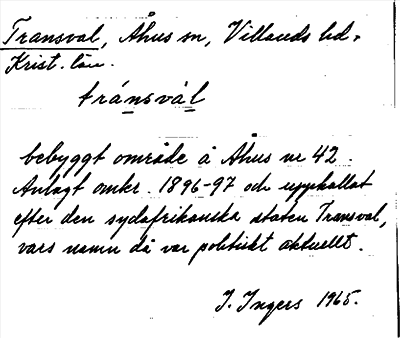 Transval, Åhus sn, Villands hd,
Krist. län.
tránsvàl
bebyggt område å Åhus nr 42.
Anlagt omkr. 1896-97 och uppkallat
efter den sydafrikanska staten Transval,
vars namn då var politiskt aktuellt.
I. Ingers 1965.